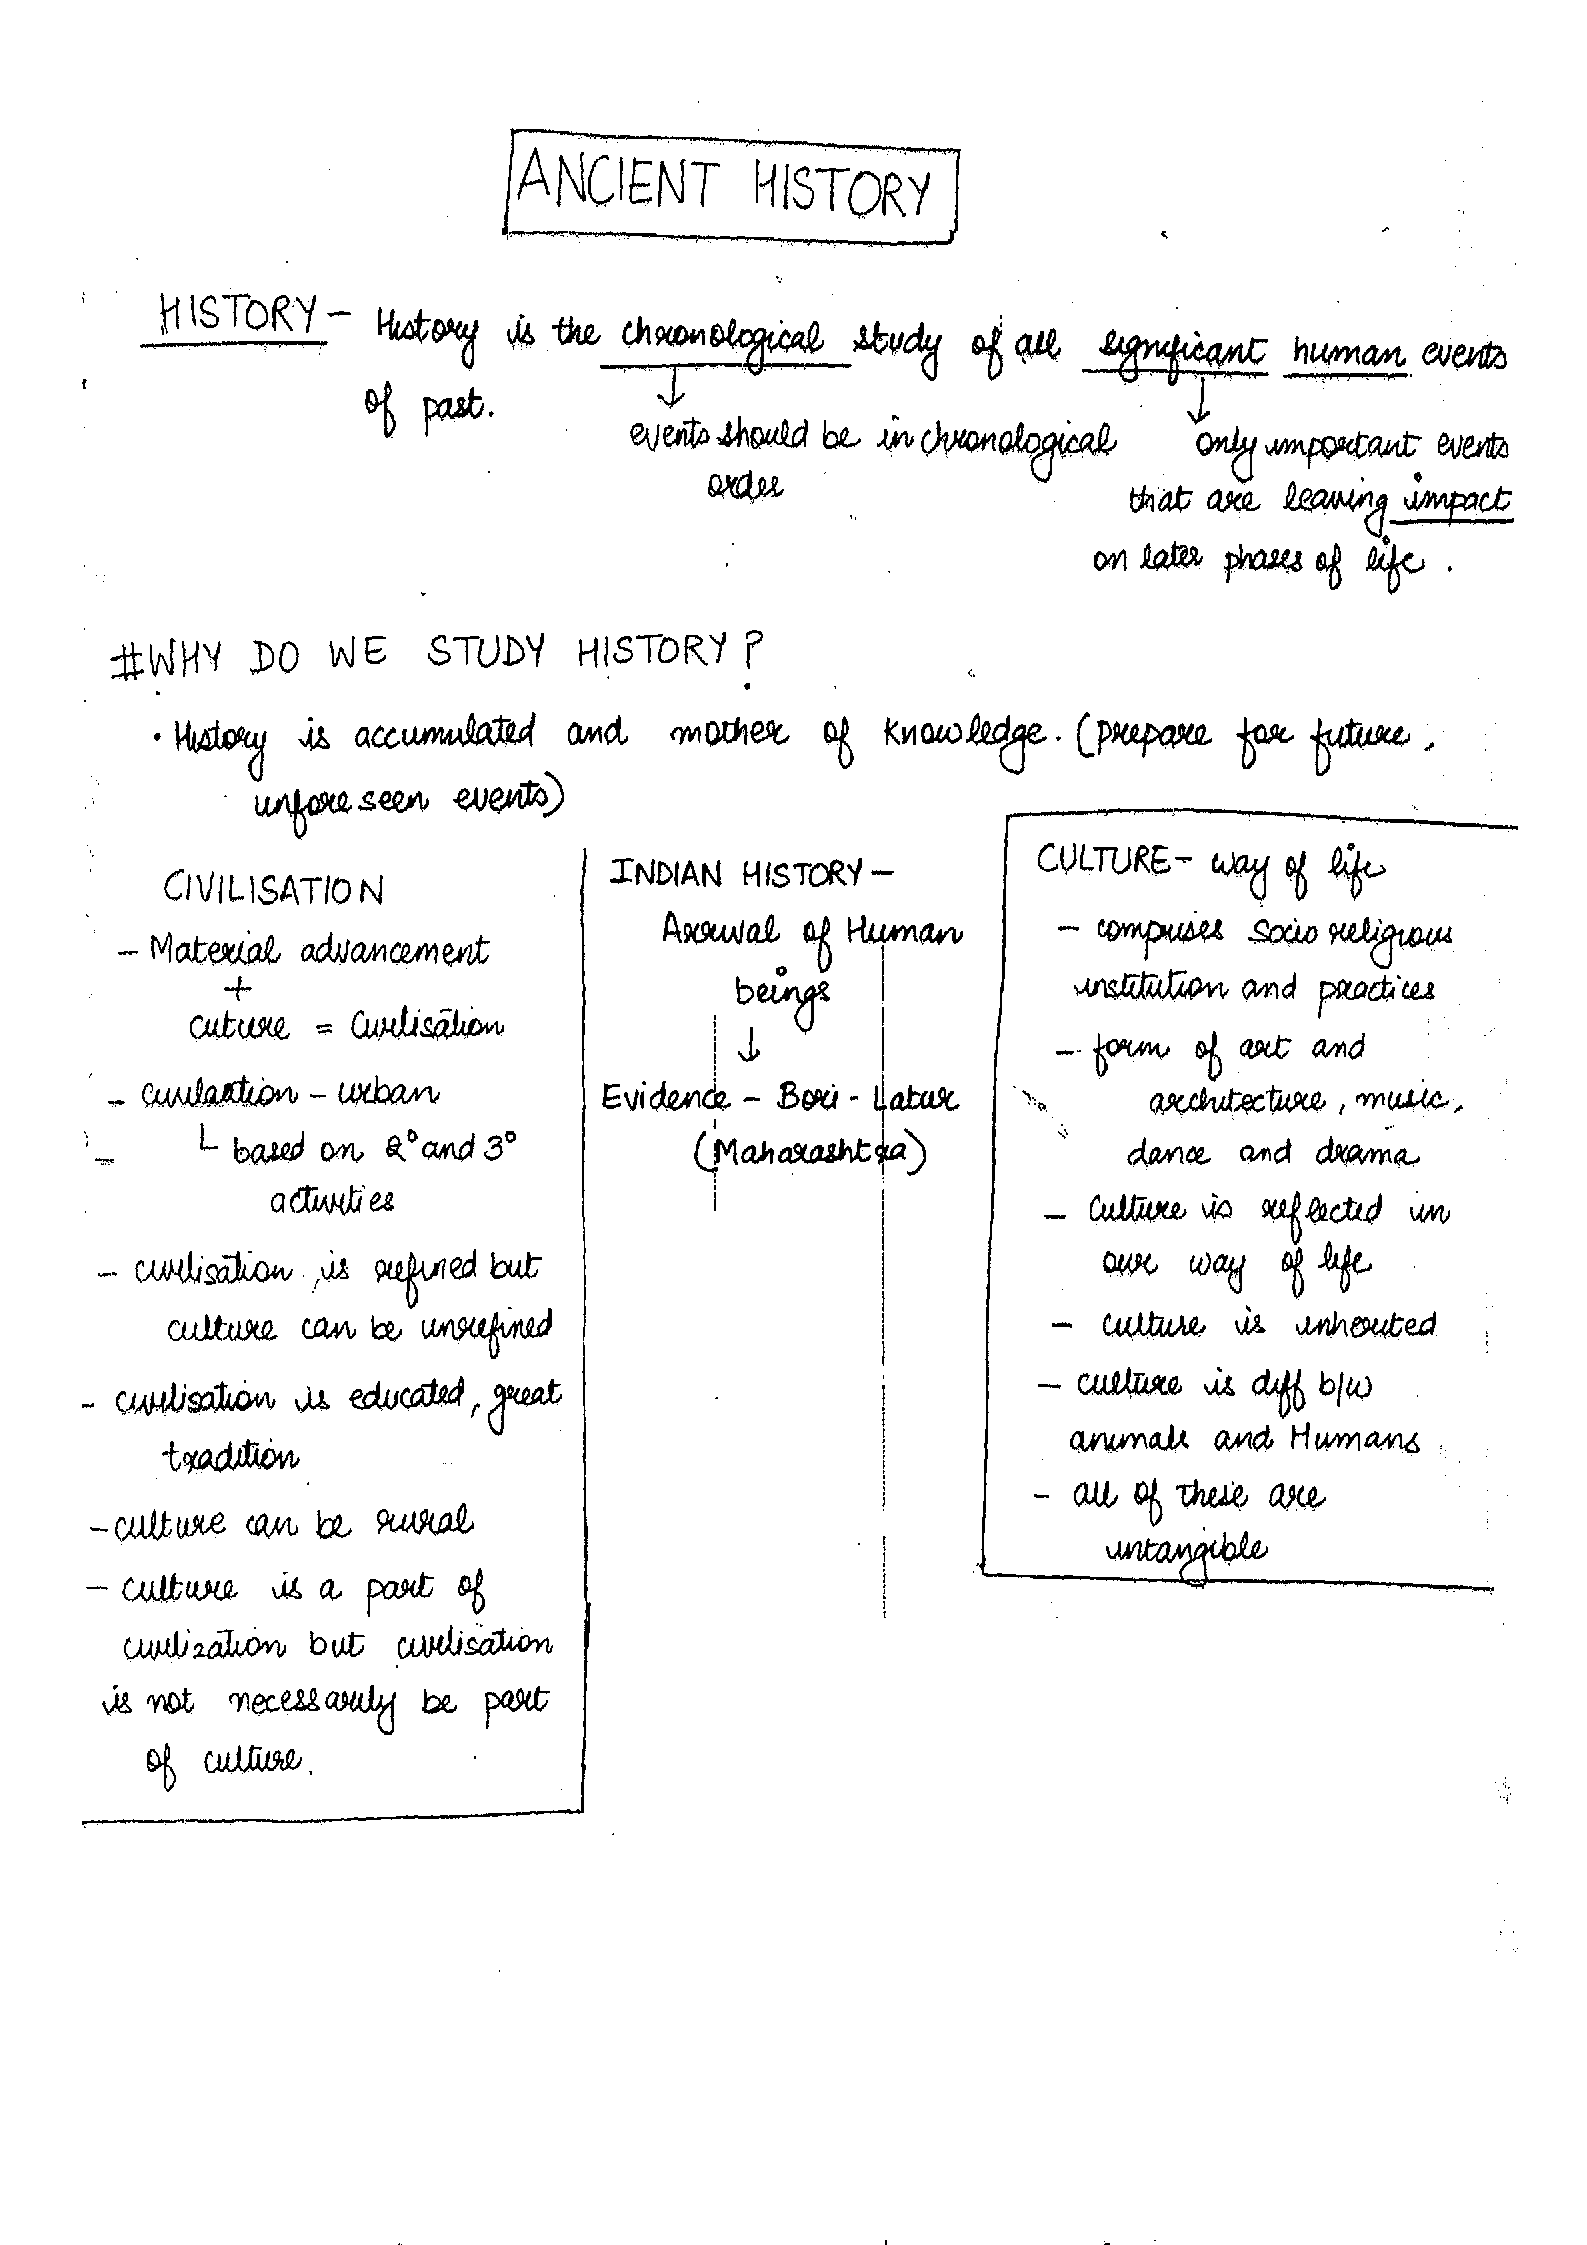 ANCIENT HISTORY
HISTORY - History is the chronological study of all significant human events
of past.
↓
events should be in chronological
order
↓
only important events
that are leaving impact
on later phases of life.
#WHY DO WE STUDY HISTORY?
• History is accumulated and mother of knowledge. (prepare for future,
unforeseen events)
CIVILISATION
- Material advancement
+
cuture = Civilisation
- civilaction - urban
- └ based on 2° and 3°
activities
- civilisation is refined but
culture can be unrefined
- civilisation is educated, great
tradition
- culture can be rural
- culture is a part of
civilization but civilisation
is not necessarily be part
of culture.
INDIAN HISTORY -
Arrival of Human
beings
↓
Evidence - Bori - Latur
(Maharashtra)
CULTURE - way of life
- comprises socio religious
institution and practices
- form of art and
architecture, music,
dance and drama
- Culture is reflected in
our way of life
- culture is inherited
- culture is diff b/w
animals and Humans
- all of these are
intangible